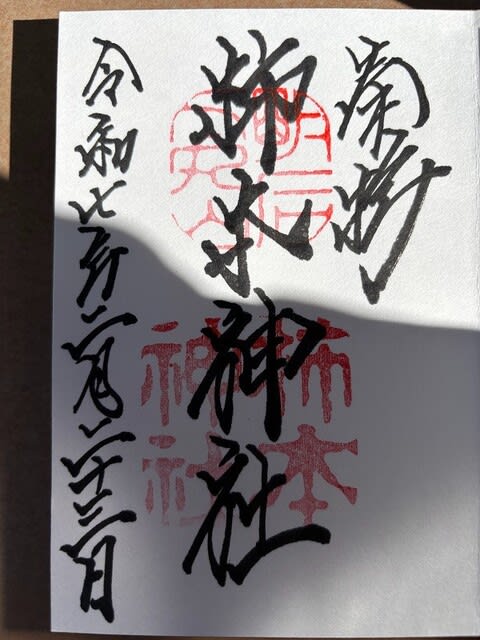 奉拝
柿本神社
令和七年二月二十三日
柿本
神社